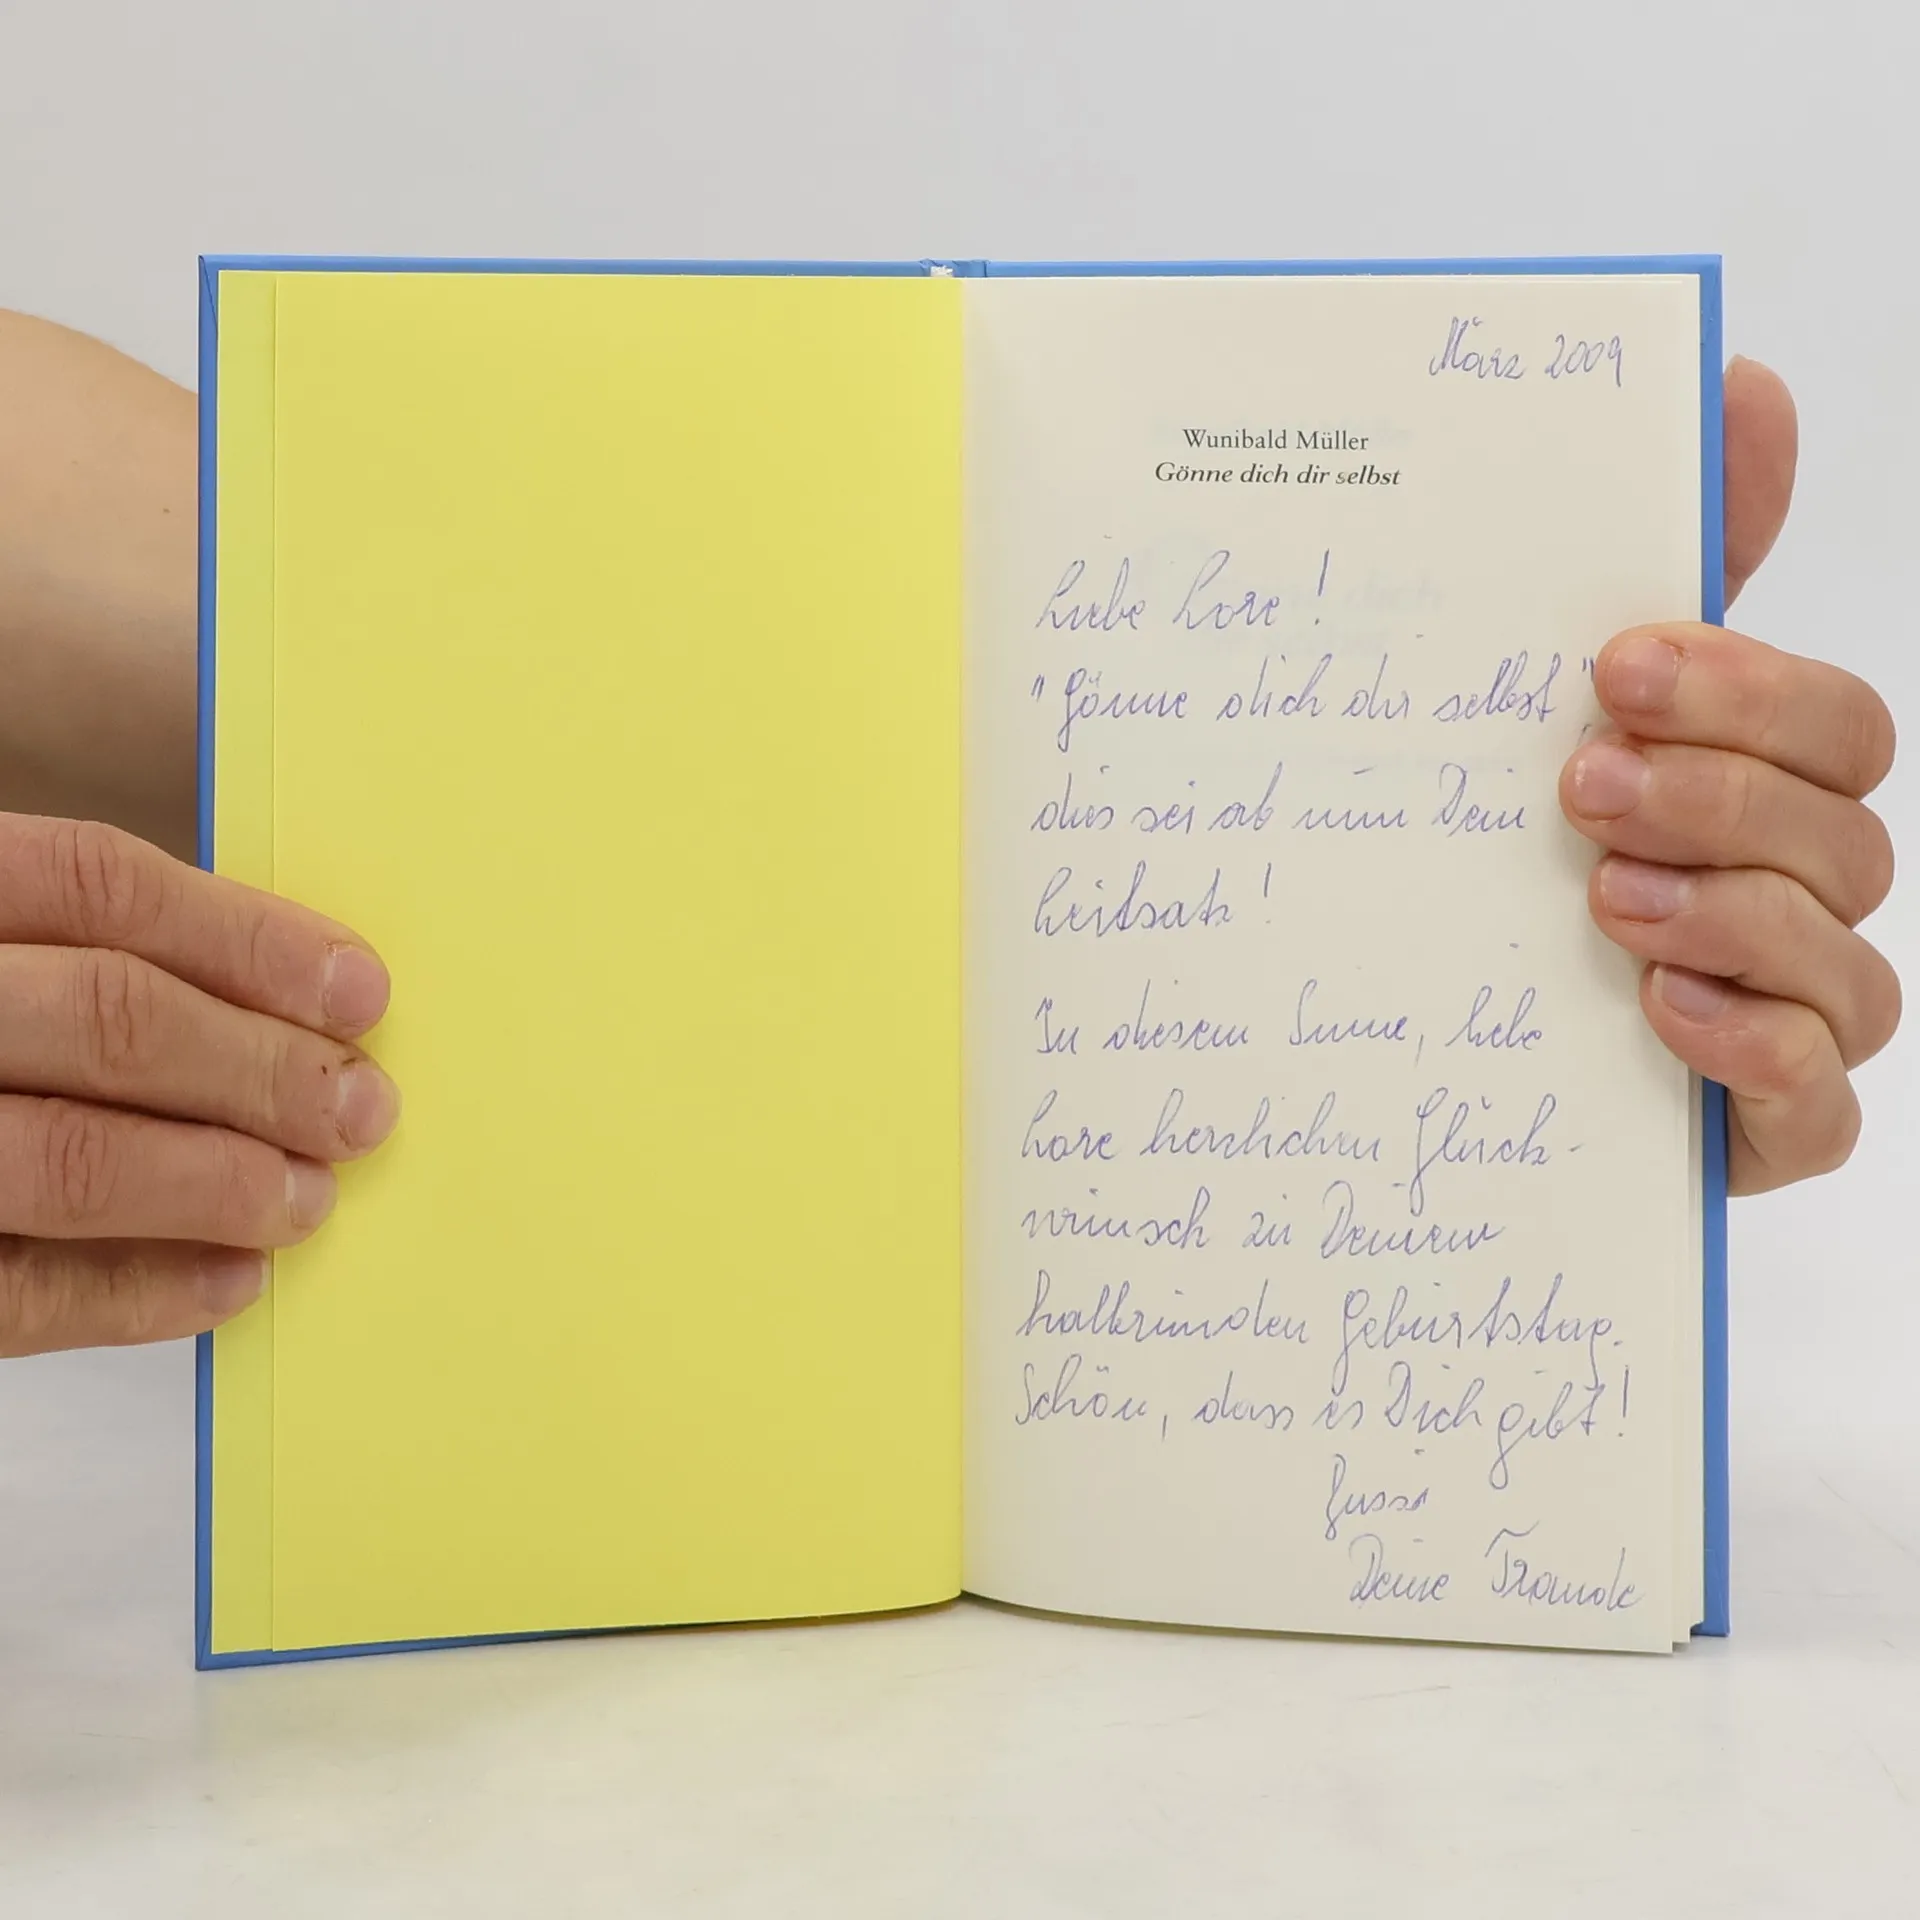 März 2009
Wunibald Müller
Gönne dich dir selbst
Liebe Lore!
"Gönne dich dir selbst",
dies sei ab nun Dein
Leitsatz!
In diesem Sinne, liebe
Lore herzlichen Glück-
wünsch zu Deinem
halbrunden Geburtstag.
Schön, dass es Dich gibt!
Bussi
Deine Traude